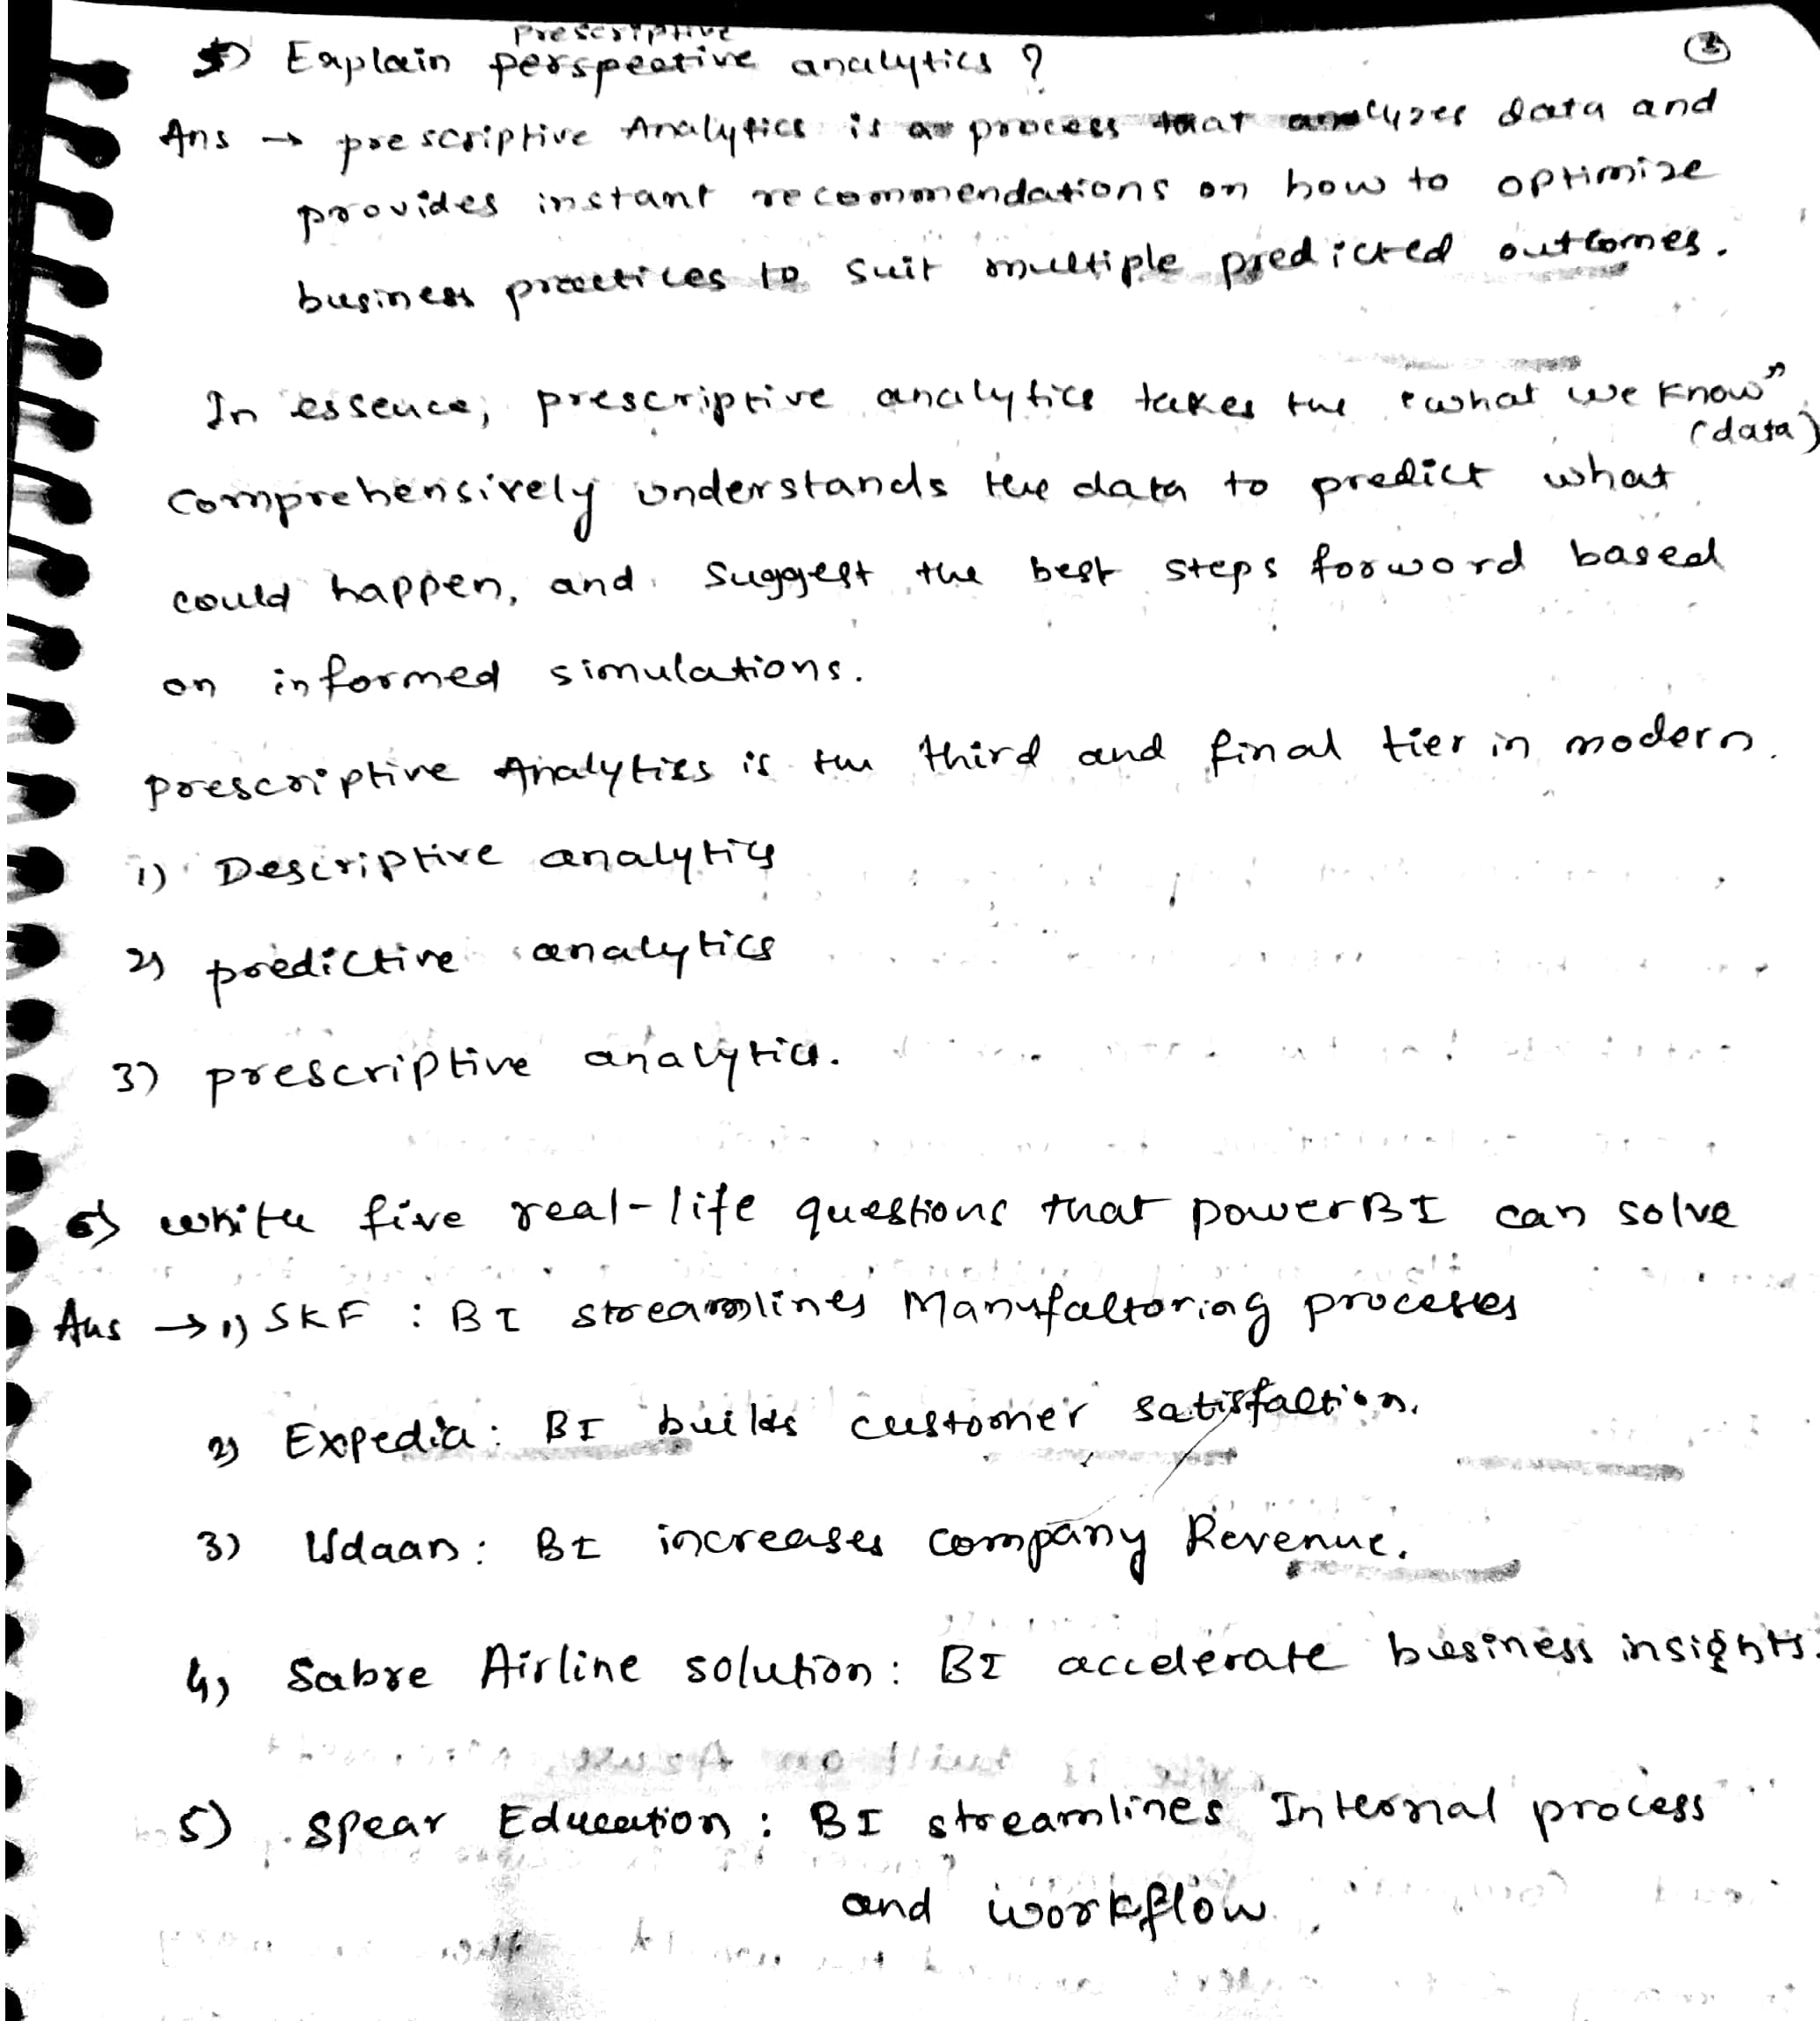 prescriptive
5) Explain perspective analytics ?
3
Ans → prescriptive Analytics is a process that analyzes data and
provides instant recommendations on how to optimize
business practices to suit multiple predicted outcomes.
In essence, prescriptive analytics takes the "what we know"
(data)
comprehensively understands the data to predict what
could happen, and suggest the best steps forword based
on informed simulations.
prescriptive Analytics is the third and final tier in modern.
1) Descriptive analytics
2) predictive analytics
3) prescriptive analytics.
6) white five real-life questions that powerBI can solve
Ans → 1) SKF : BI streamlines Manufacturing processes
2) Expedia : BI builds customer satisfaction.
3) Udaan : BI increases company Revenue.
4) Sabre Airline solution : BI accelerate business insights.
5) spear Education : BI streamlines Internal process
and workflow